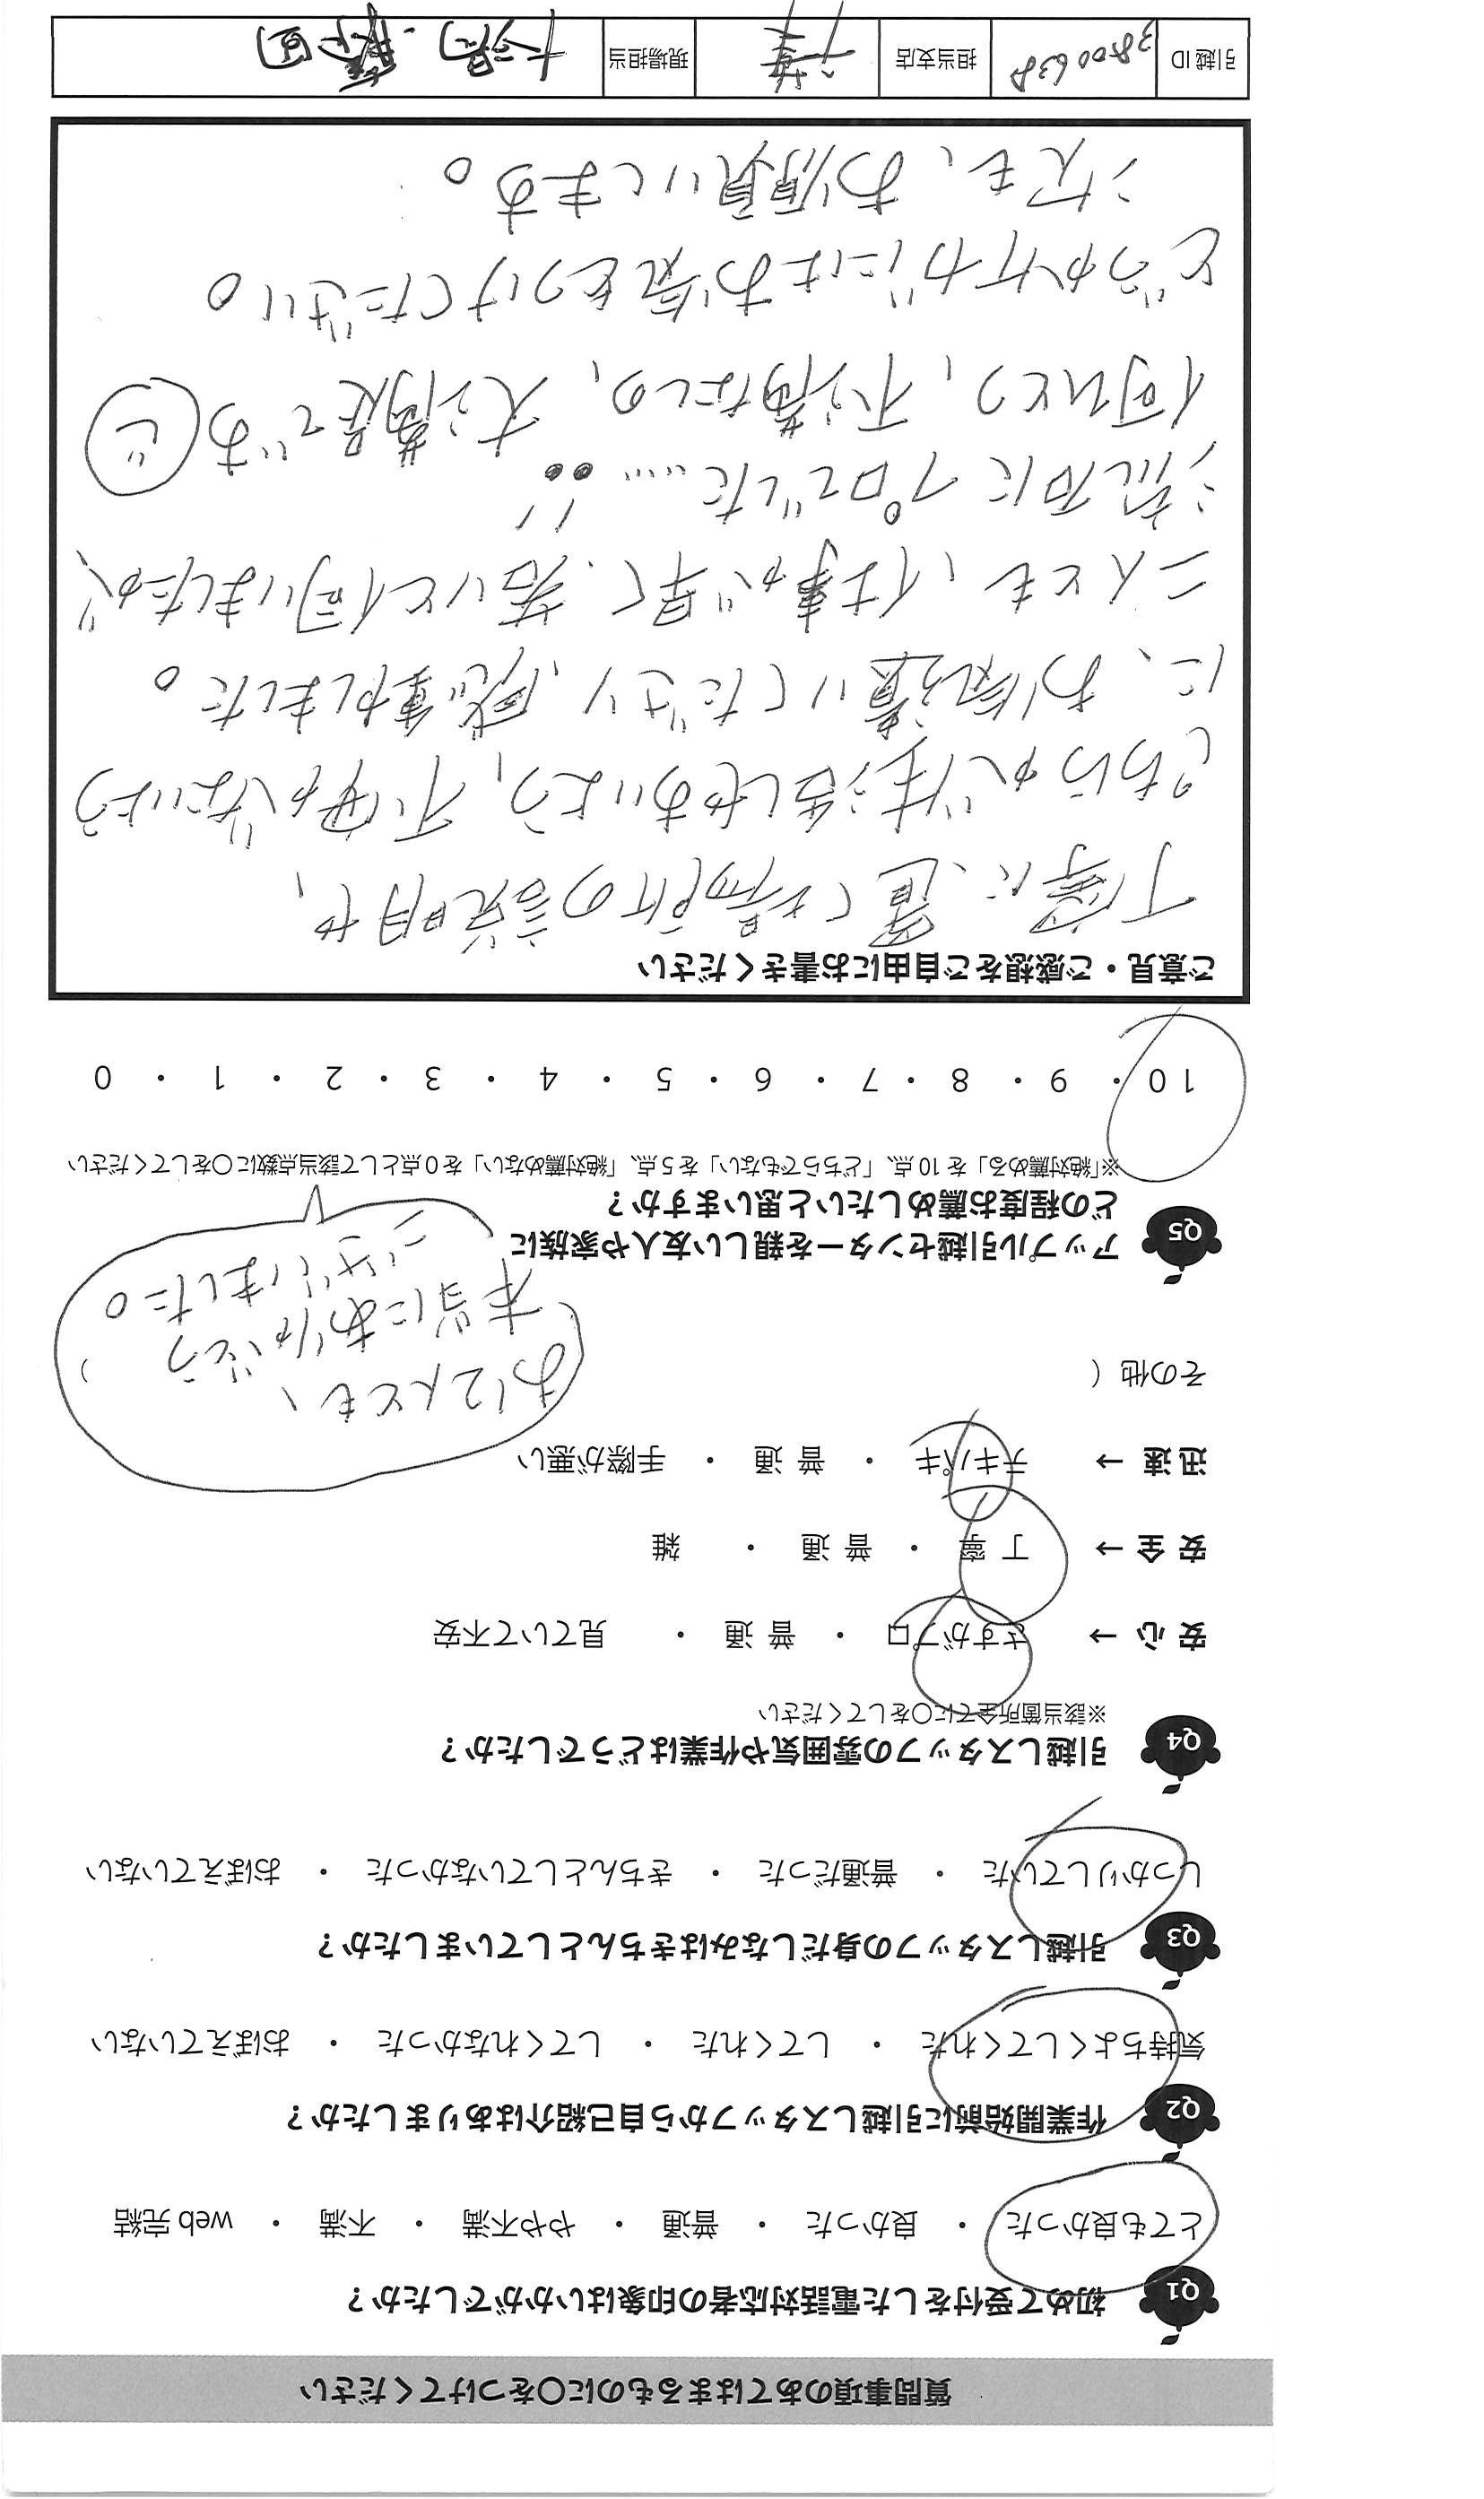 質問事項のあてはまるものに○をつけてください
Q1 初めて受付をした電話対応者の印象はいかがでしたか？
とても良かった ・ 良かった ・ 普通 ・ やや不満 ・ 不満 ・ web 完結
Q2 作業開始前に引越しスタッフから自己紹介はありましたか？
気持ちよくしてくれた ・ してくれた ・ してくれなかった ・ おぼえていない
Q3 引越しスタッフの身だしなみはきちんとしていましたか？
しっかりしていた ・ 普通だった ・ きちんとしていなかった ・ おぼえていない
Q4 引越しスタッフの雰囲気や作業はどうでしたか？
※該当箇所全てに○をしてください
安 心 → さすがプロ ・ 普 通 ・ 見ていて不安
安 全 → 丁 寧 ・ 普 通 ・ 雑
迅 速 → テキパキ ・ 普 通 ・ 手際が悪い
その他（ ）
お2人とも、
本当にありがとう
ございました。
Q5 アップル引越センターを親しい友人や家族に
どの程度お薦めしたいと思いますか？
※「絶対薦める」を 10 点、「どちらでもない」を 5 点、「絶対薦めない」を 0 点として該当点数に○をしてください
10 ・ 9 ・ 8 ・ 7 ・ 6 ・ 5 ・ 4 ・ 3 ・ 2 ・ 1 ・ 0
ご意見・ご感想をご自由にお書きください
丁寧に、置く場所の説明や、
こちらが生活しやすいよう、不便がないよう
に、お気遣いくださり、感動しました。
二人とも、仕事が早く、若いと伺いましたが、
流石にプロでした……!!
何ひとつ、不満なしの、大満足です
どうかケガにはお気をつけてください。
次も、お願いします。
引越 ID 担当支店 現場担当